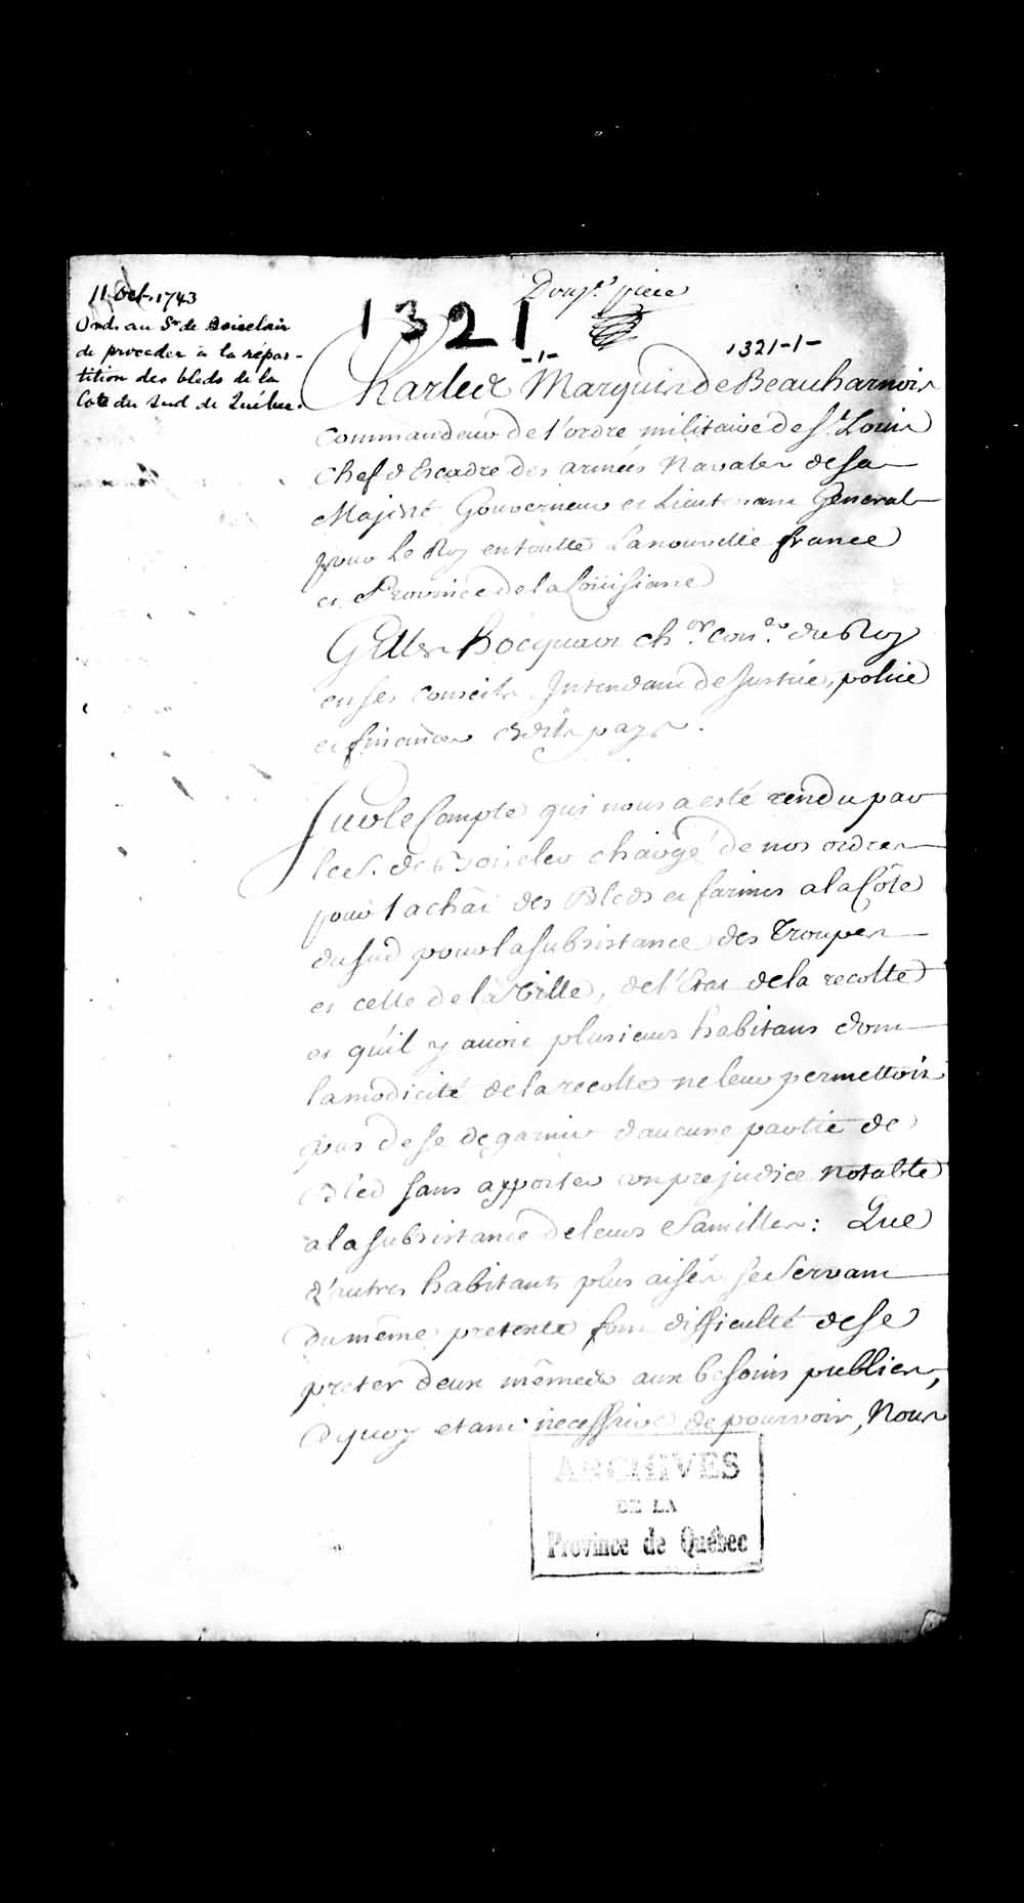 11 Oct. 1743
Ord. au Sr de Boisclair
de proceder à la répar-
tition des bleds de la
Cote du Sud de Québec.
piece
1321
-1-
1321-1-
Charles Marquis de Beauharnois
Commandeur de l'ordre militaire de St Louis
Chef d'Escadre des armées Navales de sa
Majesté Gouverneur et Lieutenant Général
pour Le Roy en toutte la nouvelle france
et Province de la Loüisiane
Gilles Hocquart chor. Conser. du Roy
en ses conseils Intendant de Justice, police
et finances esdits pays.
Sur le Compte qui nous a esté rendu par
le S. de Boiscler chargé de nos ordres
pour l'achat des Bleds et farines a la Côte
du Sud pour la subsistance des Troupes
et celle de la Ville, de l'Etat de la recolte
et qu'il y avoit plusieurs habitans dont
la modicité de la recolte ne leur permettoit
pas de se degarnir d'aucune partie de
Bled sans apporter un prejudice notable
a la subsistance de leurs familles : Que
d'autres habitants plus aisés se Servant
du même pretexte font difficulté de se
preter d'eux mêmes aux besoins publics,
A quoy etant necessaire de pourvoir, Nous
ARCHIVES
DE LA
Province de Québec